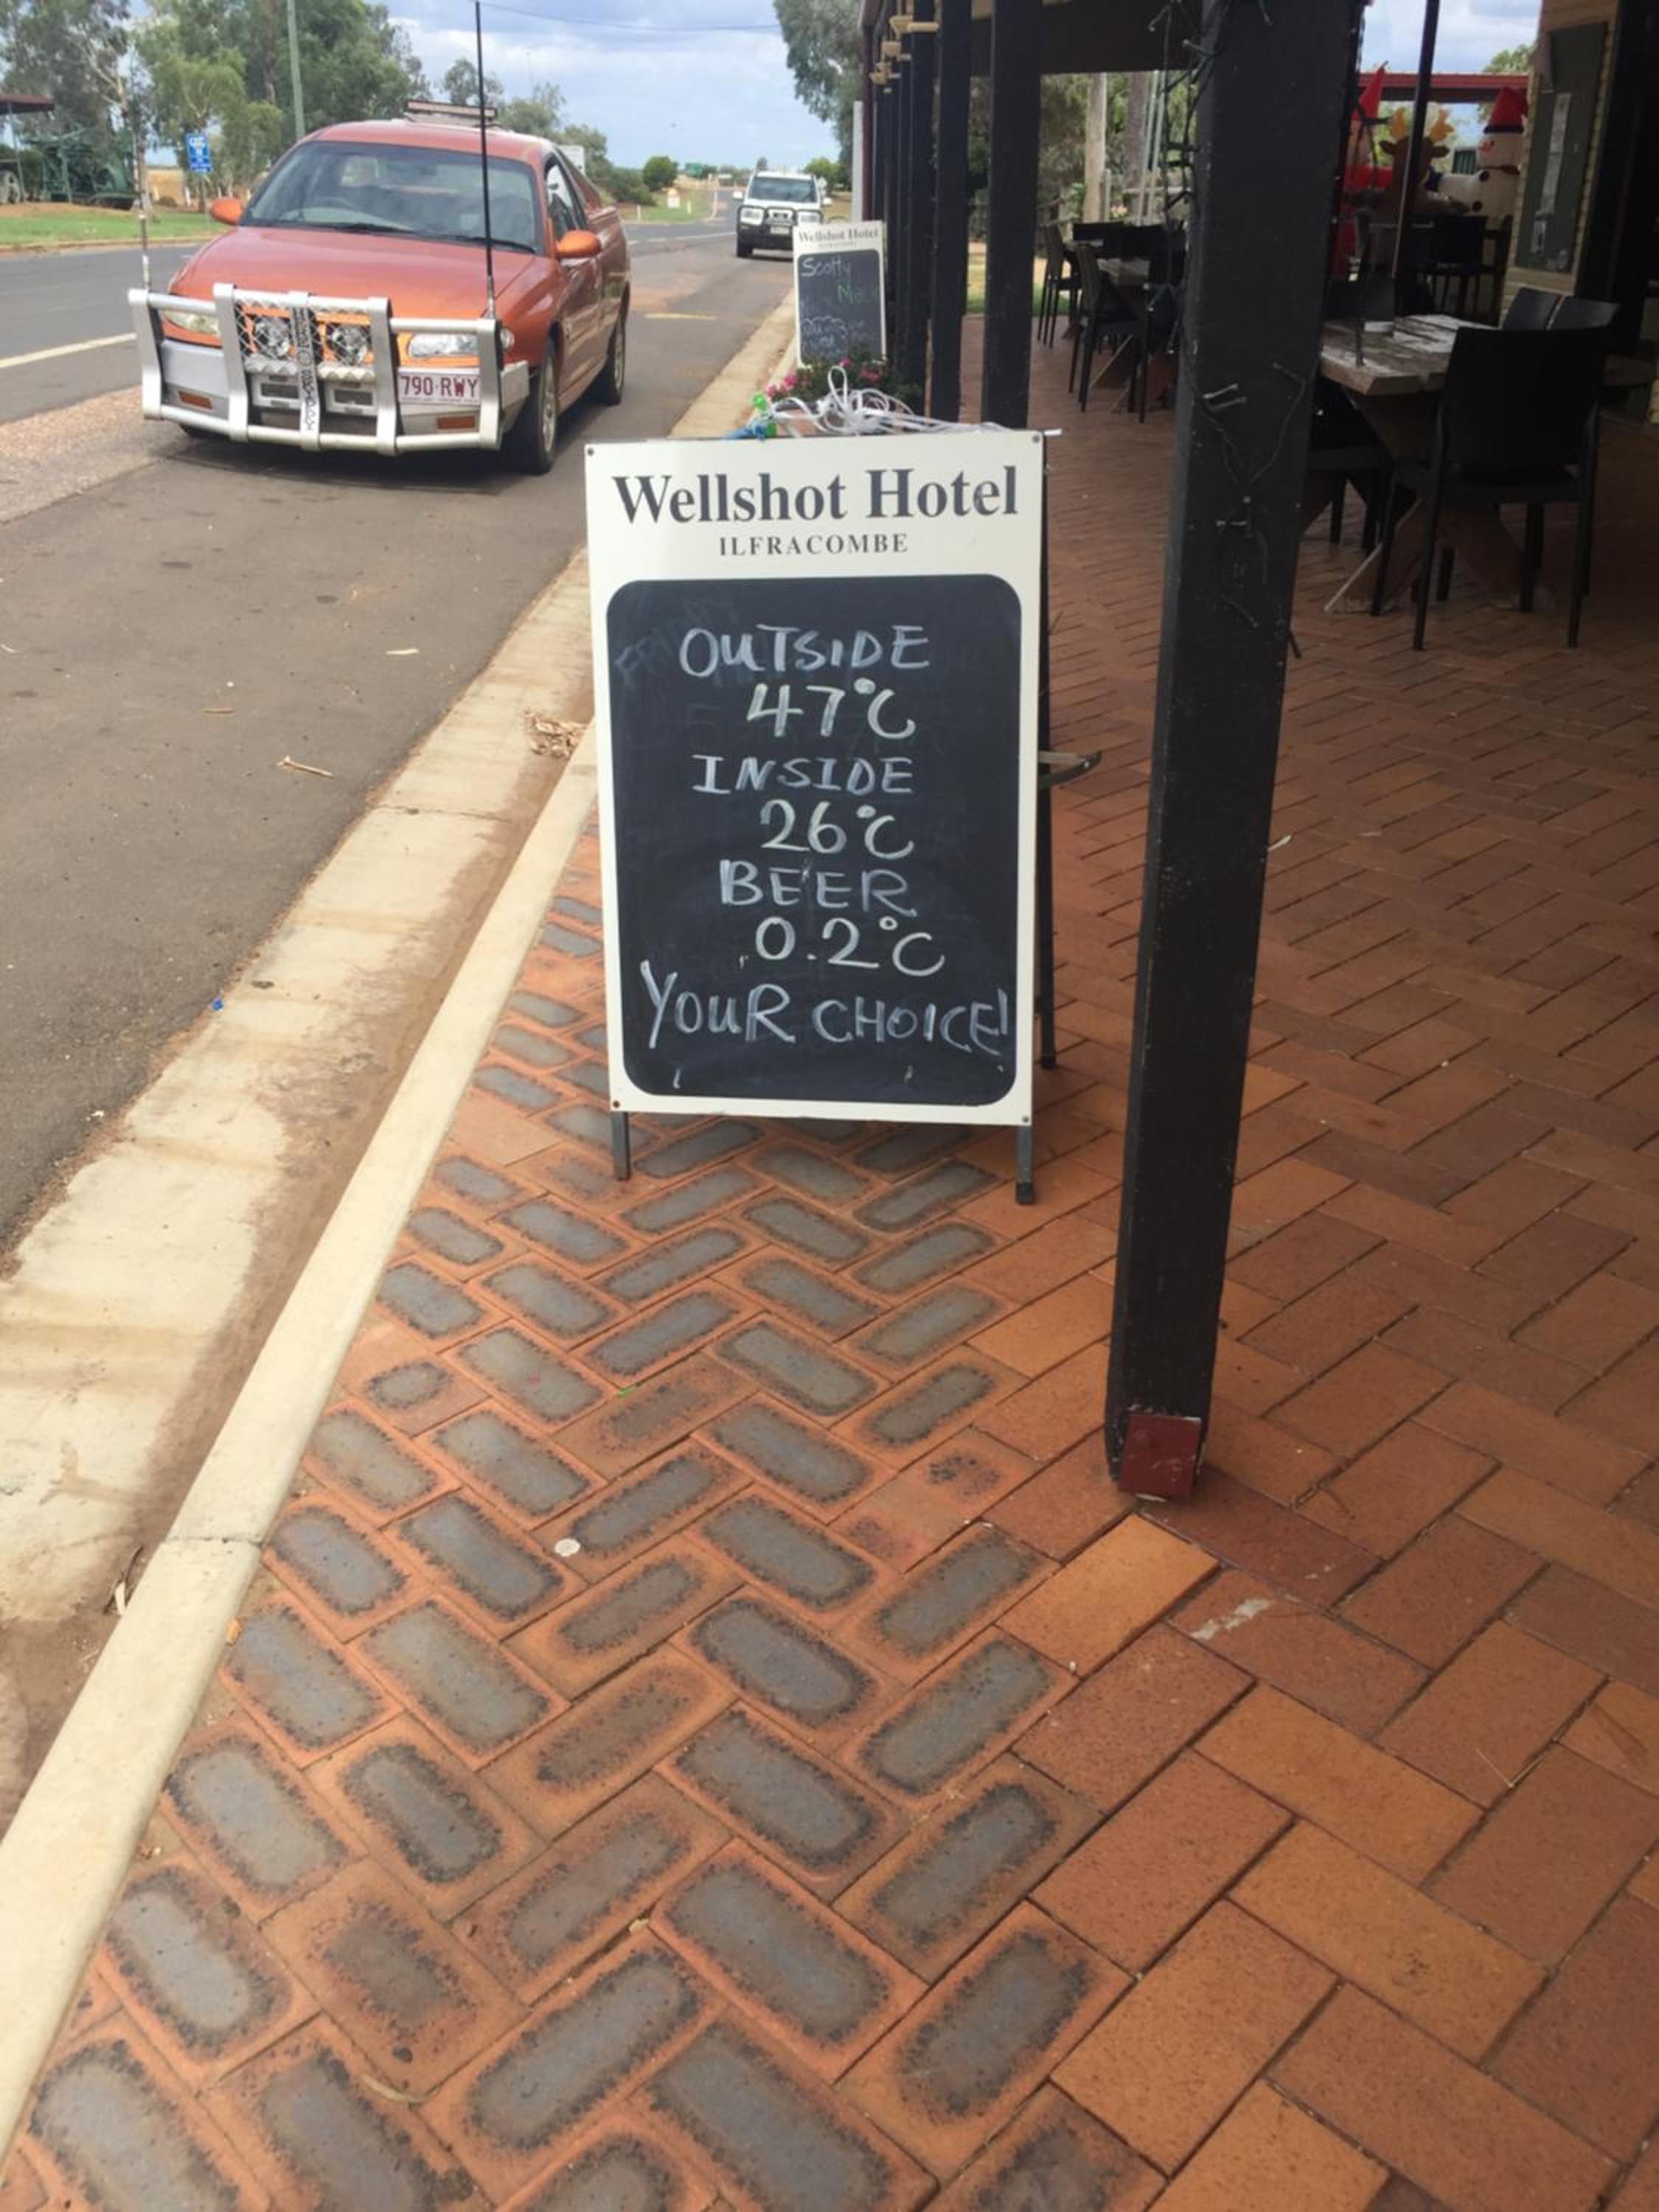 Wellshot Hotel
Scotty
790·RWY
Wellshot Hotel
ILFRACOMBE
OUTSIDE
47°C
INSIDE
26°C
BEER
0.2°C
YOUR CHOICE!